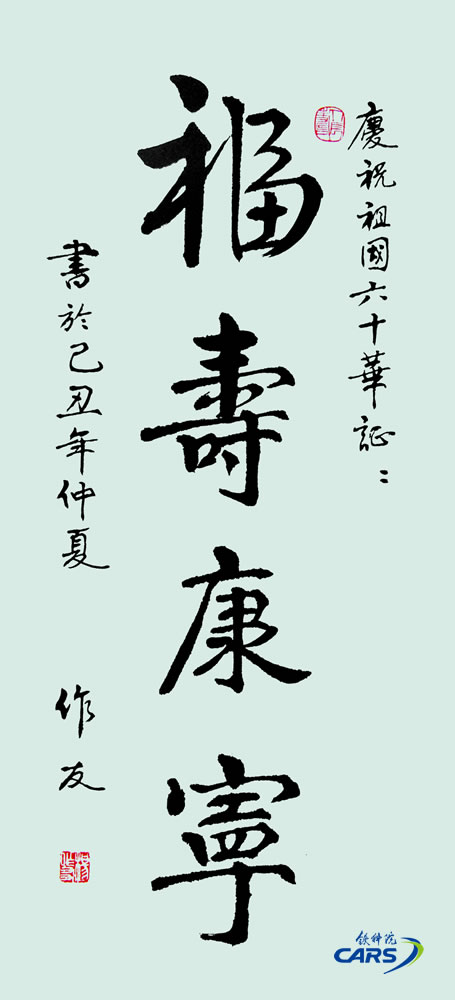 慶祝祖國六十華誕：
福壽康寧
書於己丑年仲夏
作友
铁科院
CARS